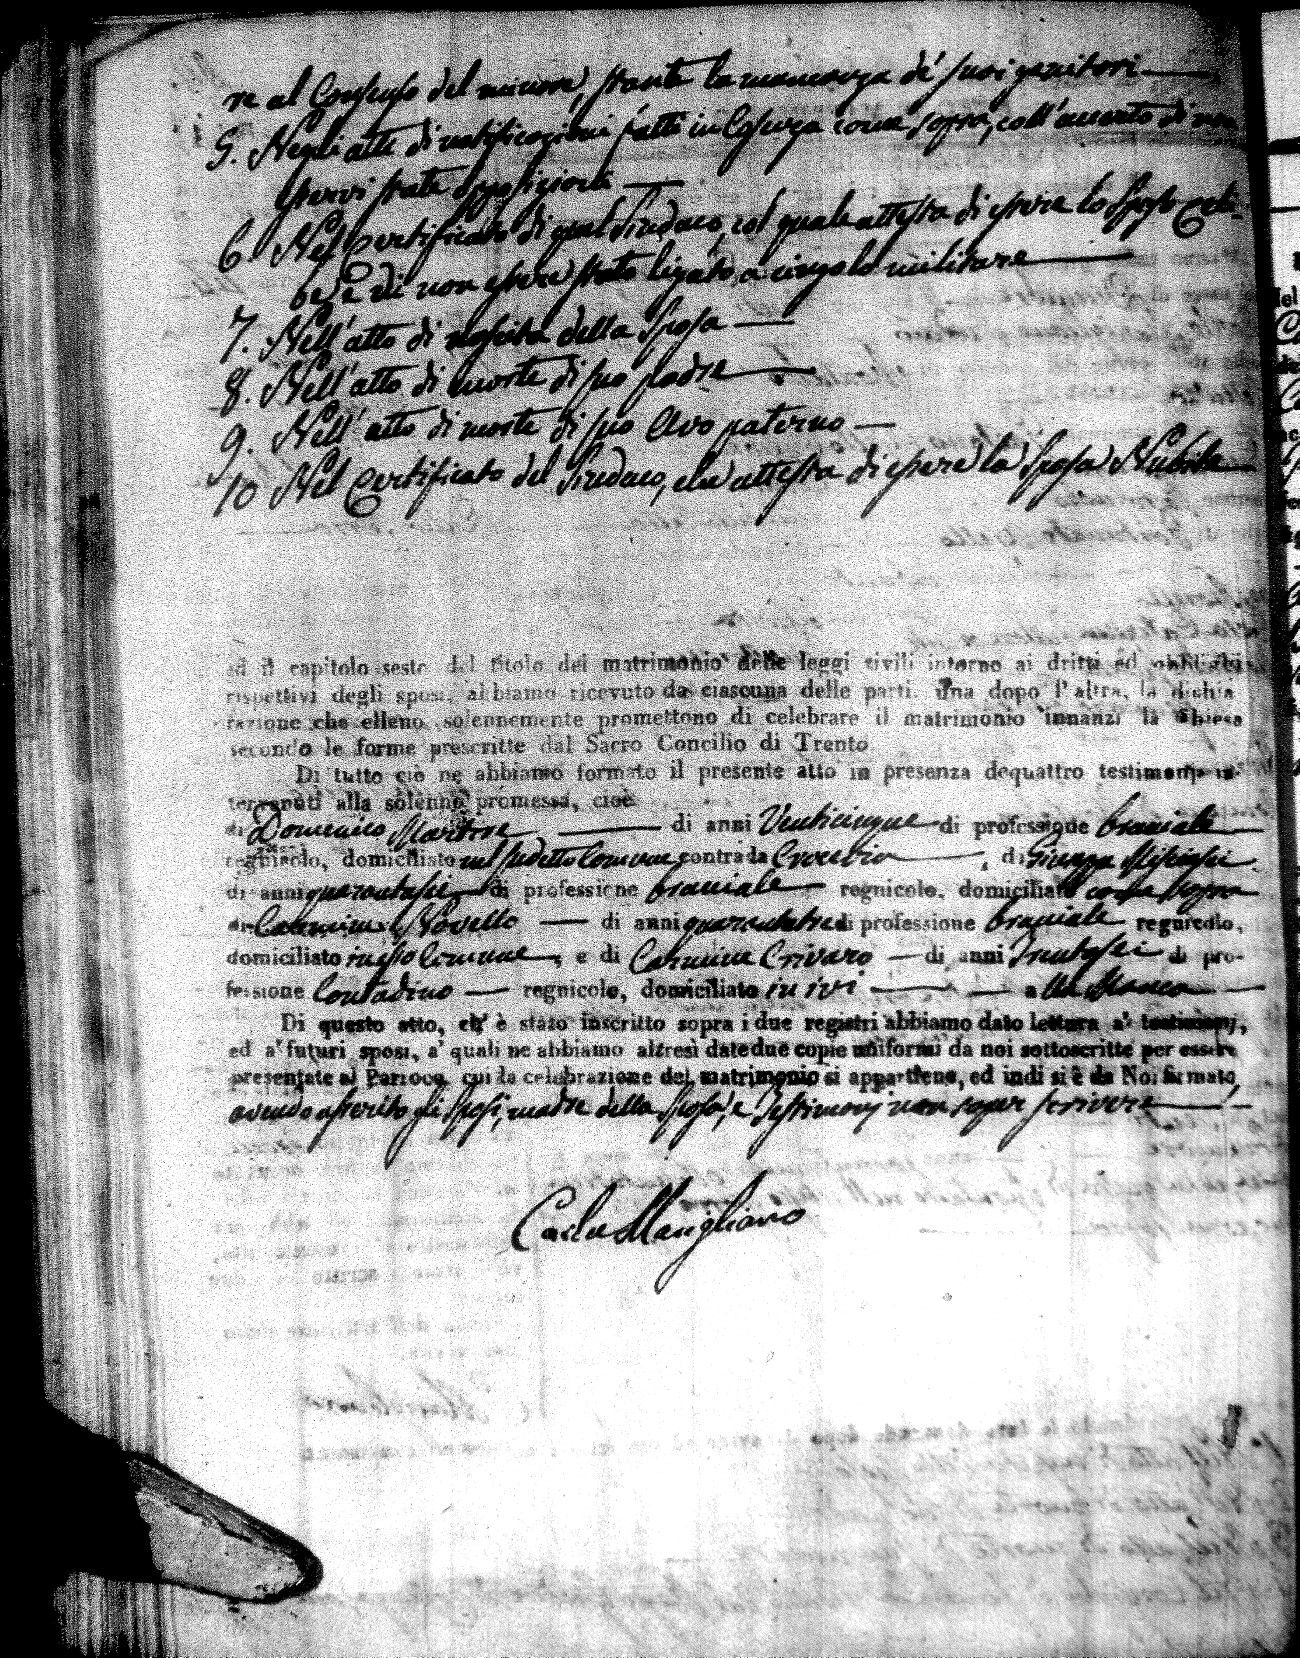 re al Consenso del minore, stante la mancanza de' suoi genitori
5. Negli atti di notificazioni fatti in Cosenza come sopra, coll'accerto di non
esservi state opposizioni
6. Nel Certificato di quel Sindaco, col quale attesta di essere lo Sposo celi-
be, e di non essere stato ligato a cingolo militare
7. Nell'atto di nascita della Sposa
8. Nell'atto di morte di suo padre
9. Nell'atto di morte di suo Avo paterno
10 Nel Certificato del Sindaco, che attesta di essere la Sposa Nubile
ed il capitolo sesto del titolo del matrimonio delle leggi civili intorno ai dritti ed obblighi
rispettivi degli sposi, abbiamo ricevuto da ciascuna delle parti, una dopo l'altra, la dichia
razione che elleno solennemente promettono di celebrare il matrimonio innanzi la Chiesa
secondo le forme prescritte dal Sacro Concilio di Trento.
Di tutto ciò ne abbiamo formato il presente atto in presenza dequattro testimonj in-
tervenuti alla solenne promessa, cioè
di Domenico di anni Venticinque di professione braciale
regnicolo, domiciliato nel sudetto Comune contrada Crocevia, di Giuseppe
di anni quarantasei di professione braciale regnicolo, domiciliato come sopra
di Carmine Novello di anni quarantatre di professione braciale regnicolo,
domiciliato in esso Comune, e di Carmine Crivaro di anni Trentasei di pro-
fessione Contadino regnicolo, domiciliato in ivi a
Di questo atto, ch' è stato inscritto sopra i due registri abbiamo dato lettura a' testimonj,
ed a' futuri sposi, a' quali ne abbiamo altresì date due copie uniformi da noi sottoscritte per essere
presentate al Parroco, cui la celebrazione del matrimonio si appartiene, ed indi si è da Noi firmato,
avendo asserito gli Sposi, madre della Sposa, e Testimonj non saper scrivere
Carlo Marigliano